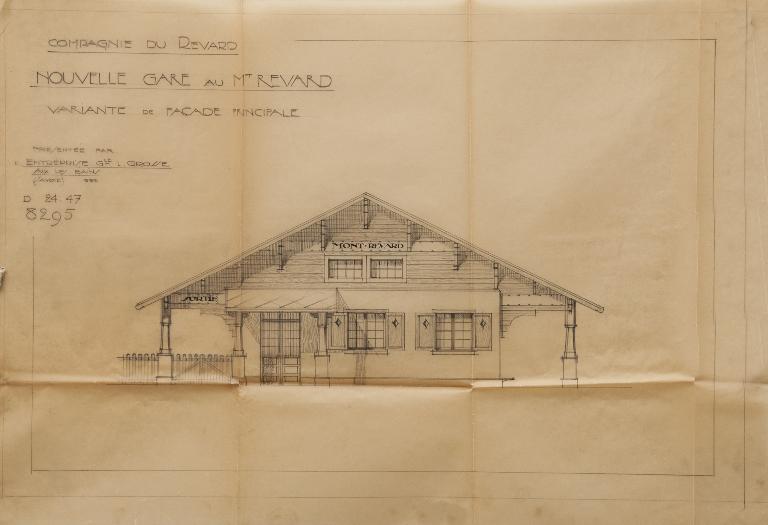 COMPAGNIE DU REVARD
NOUVELLE GARE AU MT REVARD
VARIANTE DE FAÇADE PRINCIPALE
PRESENTÉE PAR
L'ENTREPRISE GLE L. GROSSE
AIX LES BAINS
(SAVOIE)
D 24 47
8295
MONT-REVARD
SORTIE